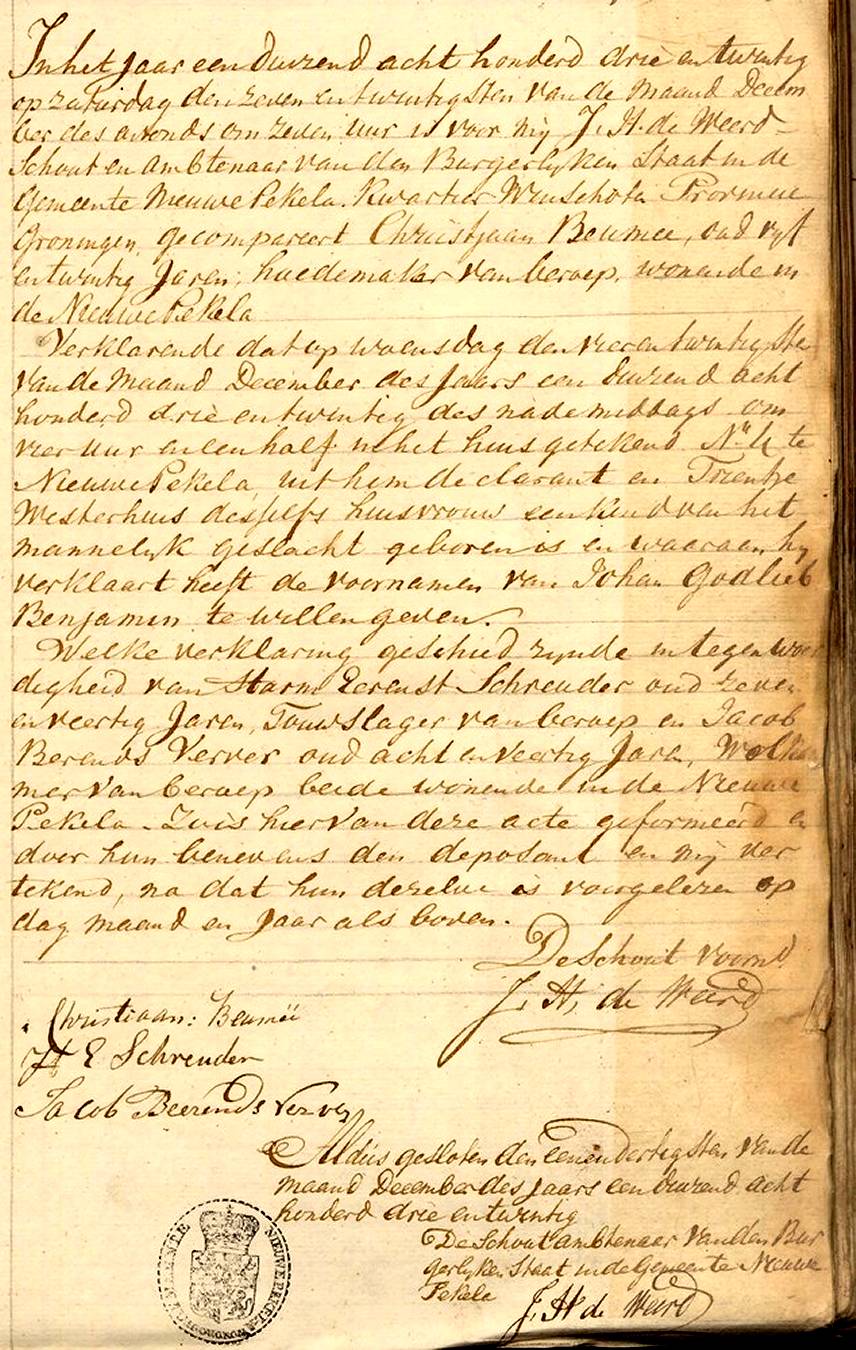 In het Jaar een duizend acht honderd drie en twintig
op zaturdag den zeven en twintigsten van de maand Decem
ber des avonds om zeven uur is voor mij J. H. de Weerd
Schout en Ambtenaar van den Burgerlyken Staat in de
Gemeente Nieuwe Pekela. Kwartier Winschoten Provincie
Groningen, gecompareert Christjaan Beumee, oud vyf
en twintig Jaren, hoedemaker van beroep, wonende in
de Nieuwe Pekela
Verklarende dat op woensdag den vier en twintigsten
van de maand December des Jaars een duizend acht
honderd drie en twintig des nademiddags om
vier uur en een half in het huis getekend N. te
Nieuwe Pekela, uit hem declarant en Trientje
Westerhuis deszelfs huisvrouw een kind van het
mannelyk geslacht geboren is en waaraan hy
verklaart heeft de voornamen van Johan Godlieb
Benjamin te willen geven.
Welke verklaring geschied zynde in tegenwoor
digheid van Harm Eerenst Schreuder oud zeven
en veertig Jaren, Touwslager van beroep en Jacob
Berends Verver oud acht en veertig Jaren, Wolkam
mer van beroep beide wonende in de Nieuwe
Pekela. Zuis hier van deze acte geformeerd en
door hun benevens den deposant en mij ver
tekend, na dat hun dezelve is voorgelezen op
dag maand en Jaar als boven.
De Schout voornd
J. H. de Weerd
Christiaan: Beumeë
H E Schreuder
Jacob Beerends Verver
Aldus gesloten den Eenendertigsten van de
maand December des Jaars een duizend acht
honderd drie en twintig
De Schout ambtenaar van den Bur
gerlyken Staat in de Gemeente Nieuwe
Pekela
J. H de Weerd
GEMEENTE NIEUWE PEKELA